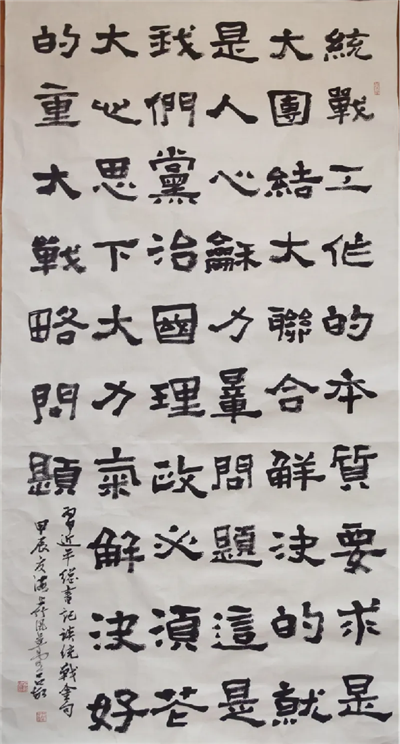 統戰工作的本質要求是
大團結大聯合解決的就
是人心龢力量問題這是
我們黨治國理政必須花
大心思下大力氣解決好
的重大戰略問題
習近平總書記談統戰金句
甲辰